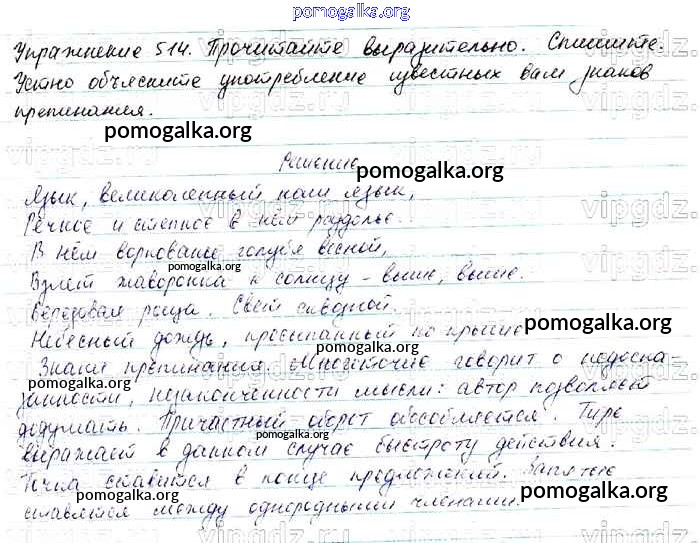 pomogalka.org
Упражнение 514. Прочитайте выразительно. Спишите.
Устно объясните употребление известных вам знаков
препинания.
pomogalka.org
Решение
pomogalka.org
Язык, великолепный наш язык,
Речное и степное в нём раздолье.
pomogalka.org
В нём воркование голубя весной,
pomogalka.org
Взлёт жаворонка к солнцу - выше, выше.
Берёзовая роща. Свет сквозной.
pomogalka.org
Небесный дождь, просыпанный по крыше
pomogalka.org
Знаки препинания. Многоточие говорит о недоска-
pomogalka.org
занности, незаконченности мысли: автор позволяет
додумать. Причастный оборот обособляется. Тире
pomogalka.org
выражает в данном случае быстроту действия.
Точка ставится в конце предложений. Запятые
pomogalka.org
pomogalka.org
pomogalka.org
ставятся между однородными членами.
vipgdz.ru